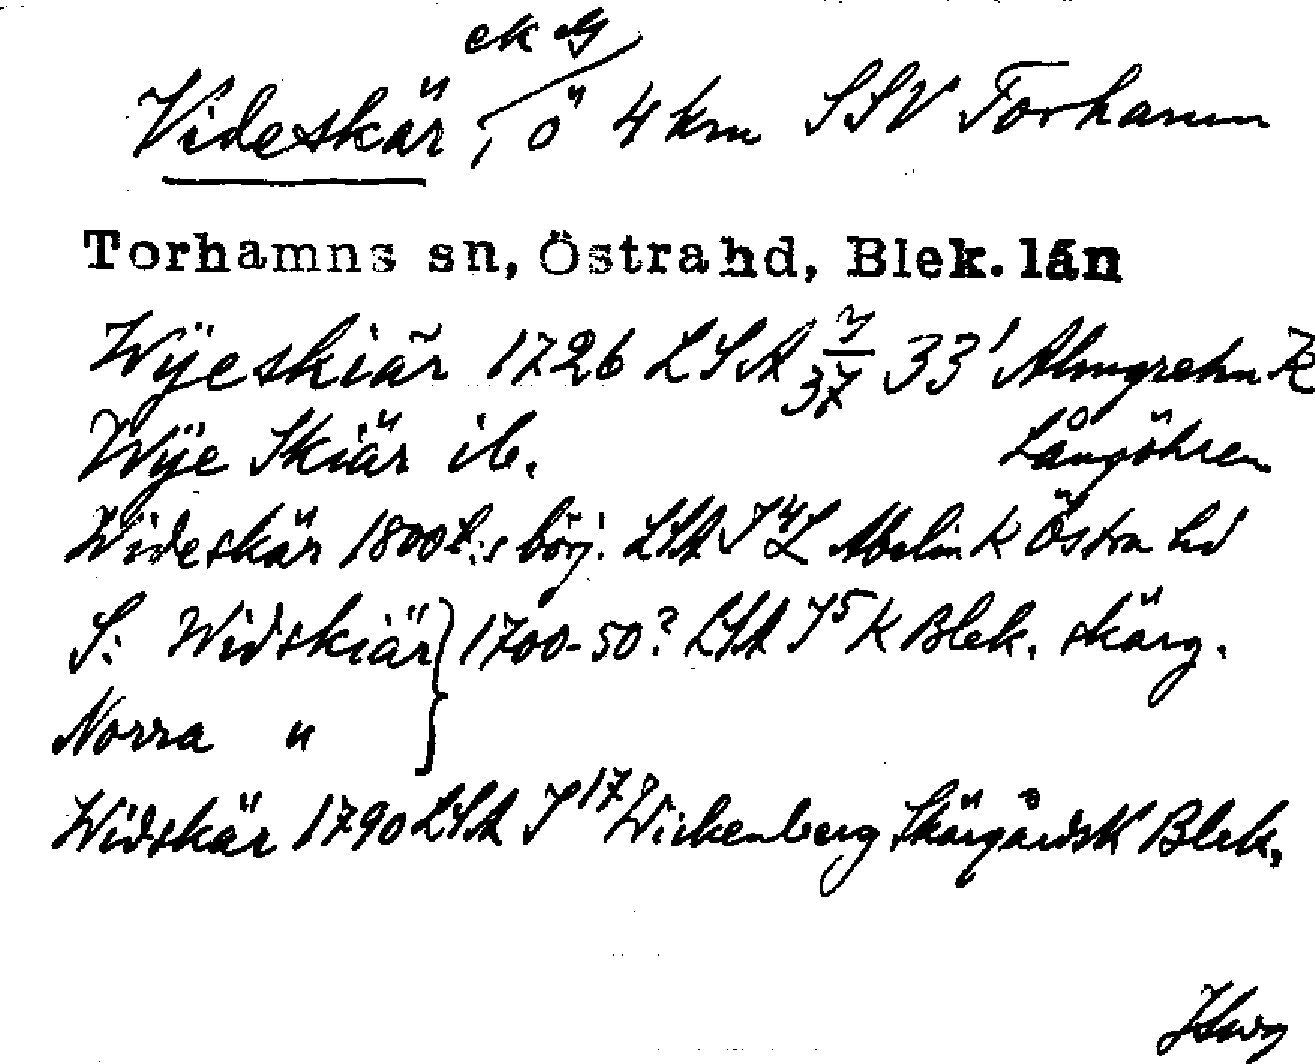 ek G
Videskär, ö 4 km SSV Torhamn
Torhamns sn, Östra hd, Blek. län
Wÿeskiär 1726 LSA 7/37 33' Almgrehn K
Wÿe Skiär ib. Långöhren
Wideskär 1800t:s börj. LSA I 4 L Abelin K Östra hd
S: Widskiär } 1700-50? LSA I 5 K Blek. skärg.
Norra "
Widskär 1790 LSA I 17 Wickenberg SkärgårdsK Blek.